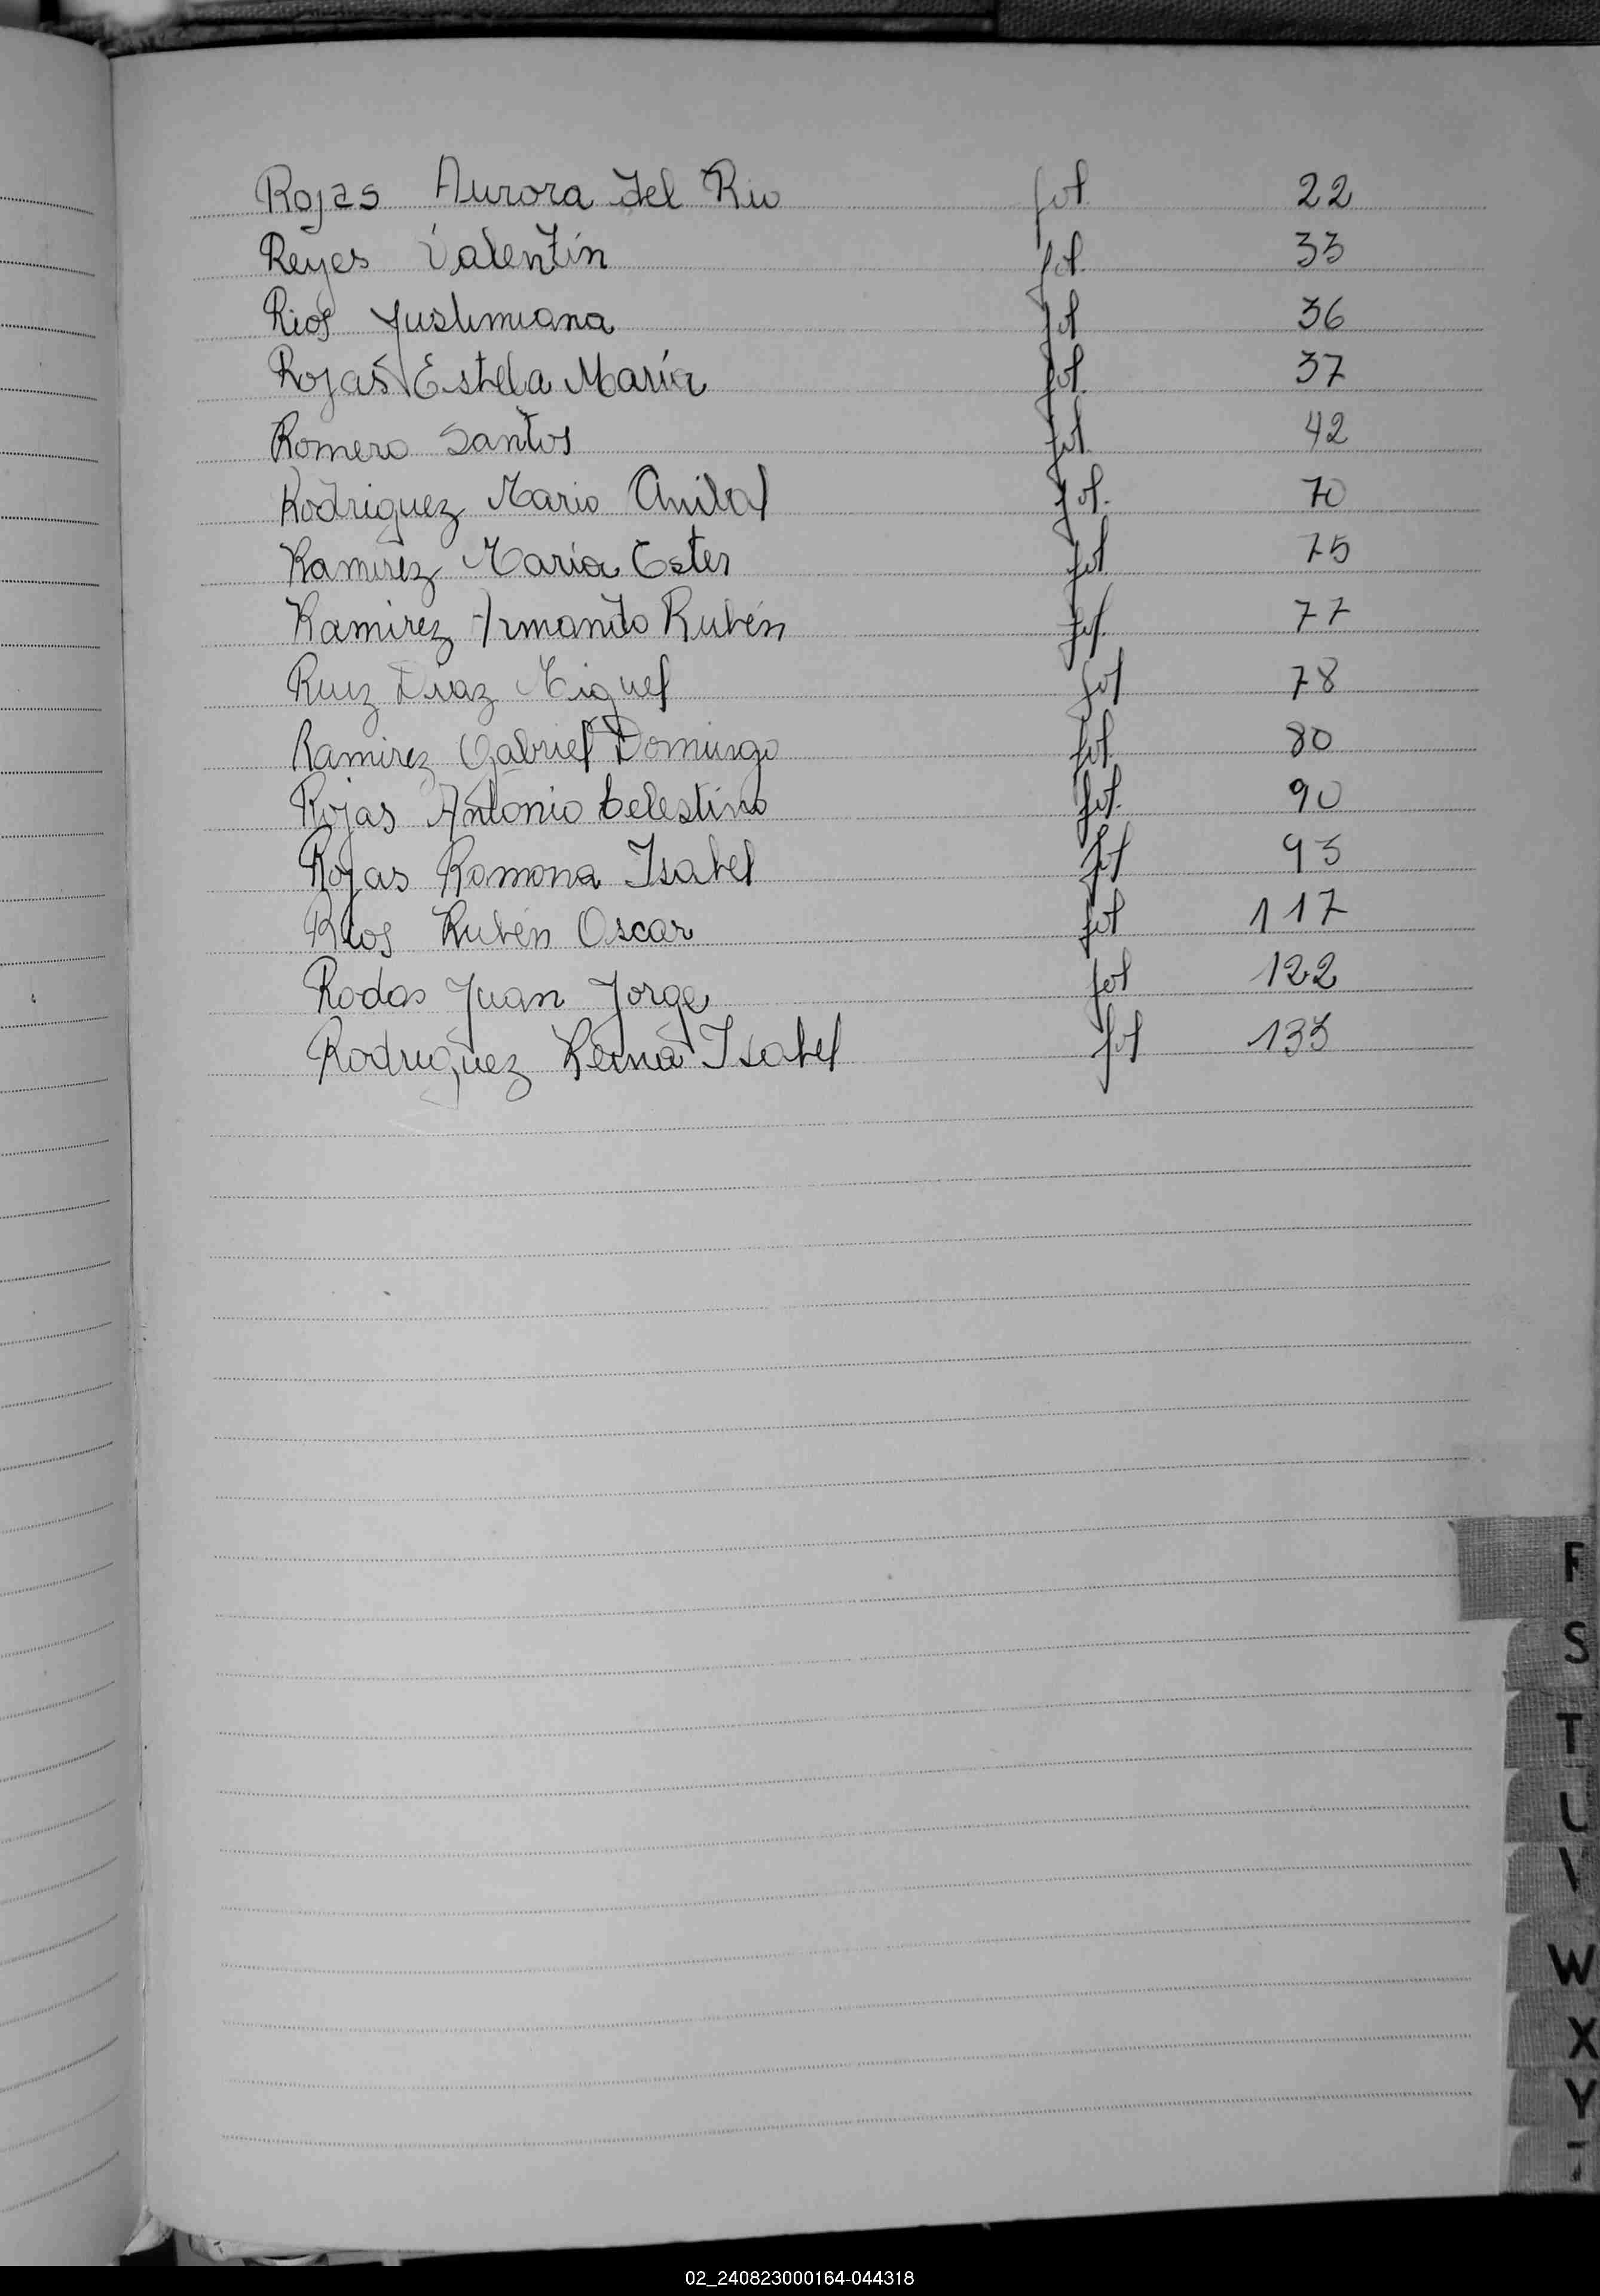 Rojas Aurora del Rio fol 22
Reyes Valentín fol. 33
Rios Justiniana fol 36
Rojas Estela María fol. 37
Romero Santos fol 42
Rodriguez Mario Anibal fol. 70
Ramirez María Ester fol 75
Ramirez Armando Rubén fol. 77
Ruiz Diaz Miguel fol 78
Ramirez Gabriel Domingo fol 80
Rojas Antonio Celestino fol. 90
Rojas Ramona Isabel fol 93
Rios Rubén Oscar fol 117
Rodas Juan Jorge fol 122
Rodriguez Isabel fol 133
S
T
U
V
W
X
Y
02_240823000164-044318